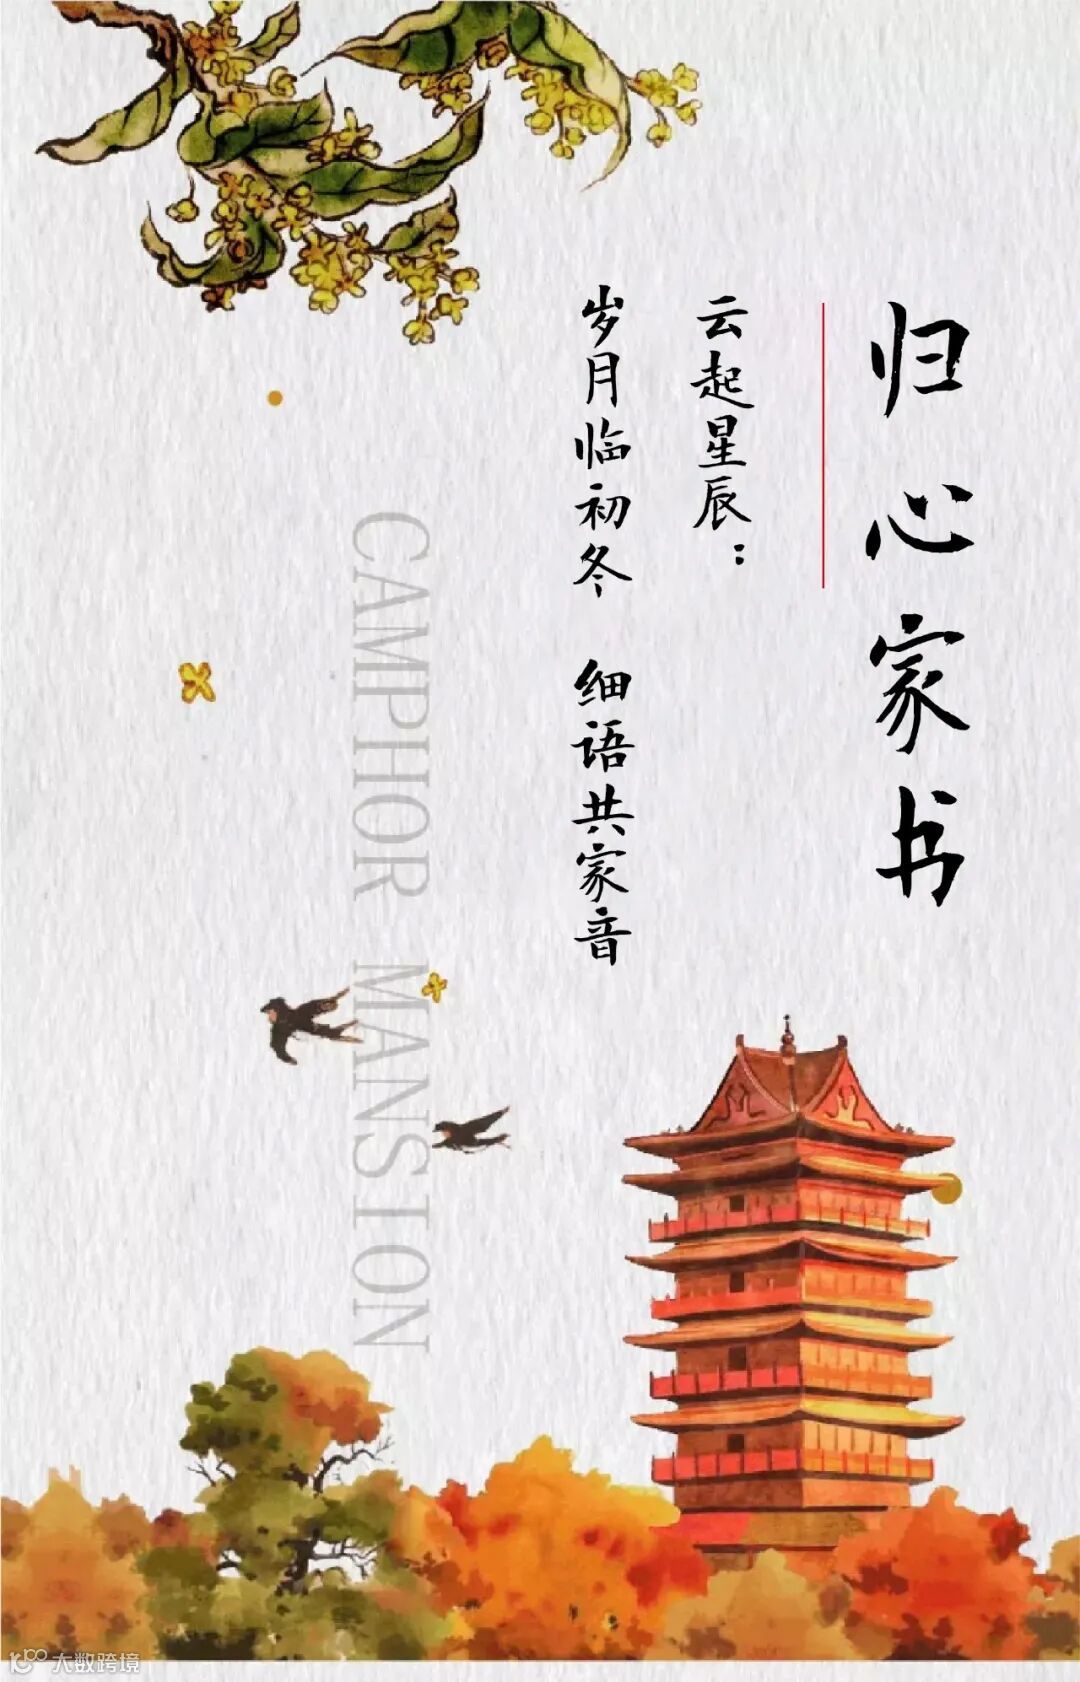 归心家书
云起星辰：
岁月临初冬 细语共家音
CAMPHOR MANSION
大数跨境